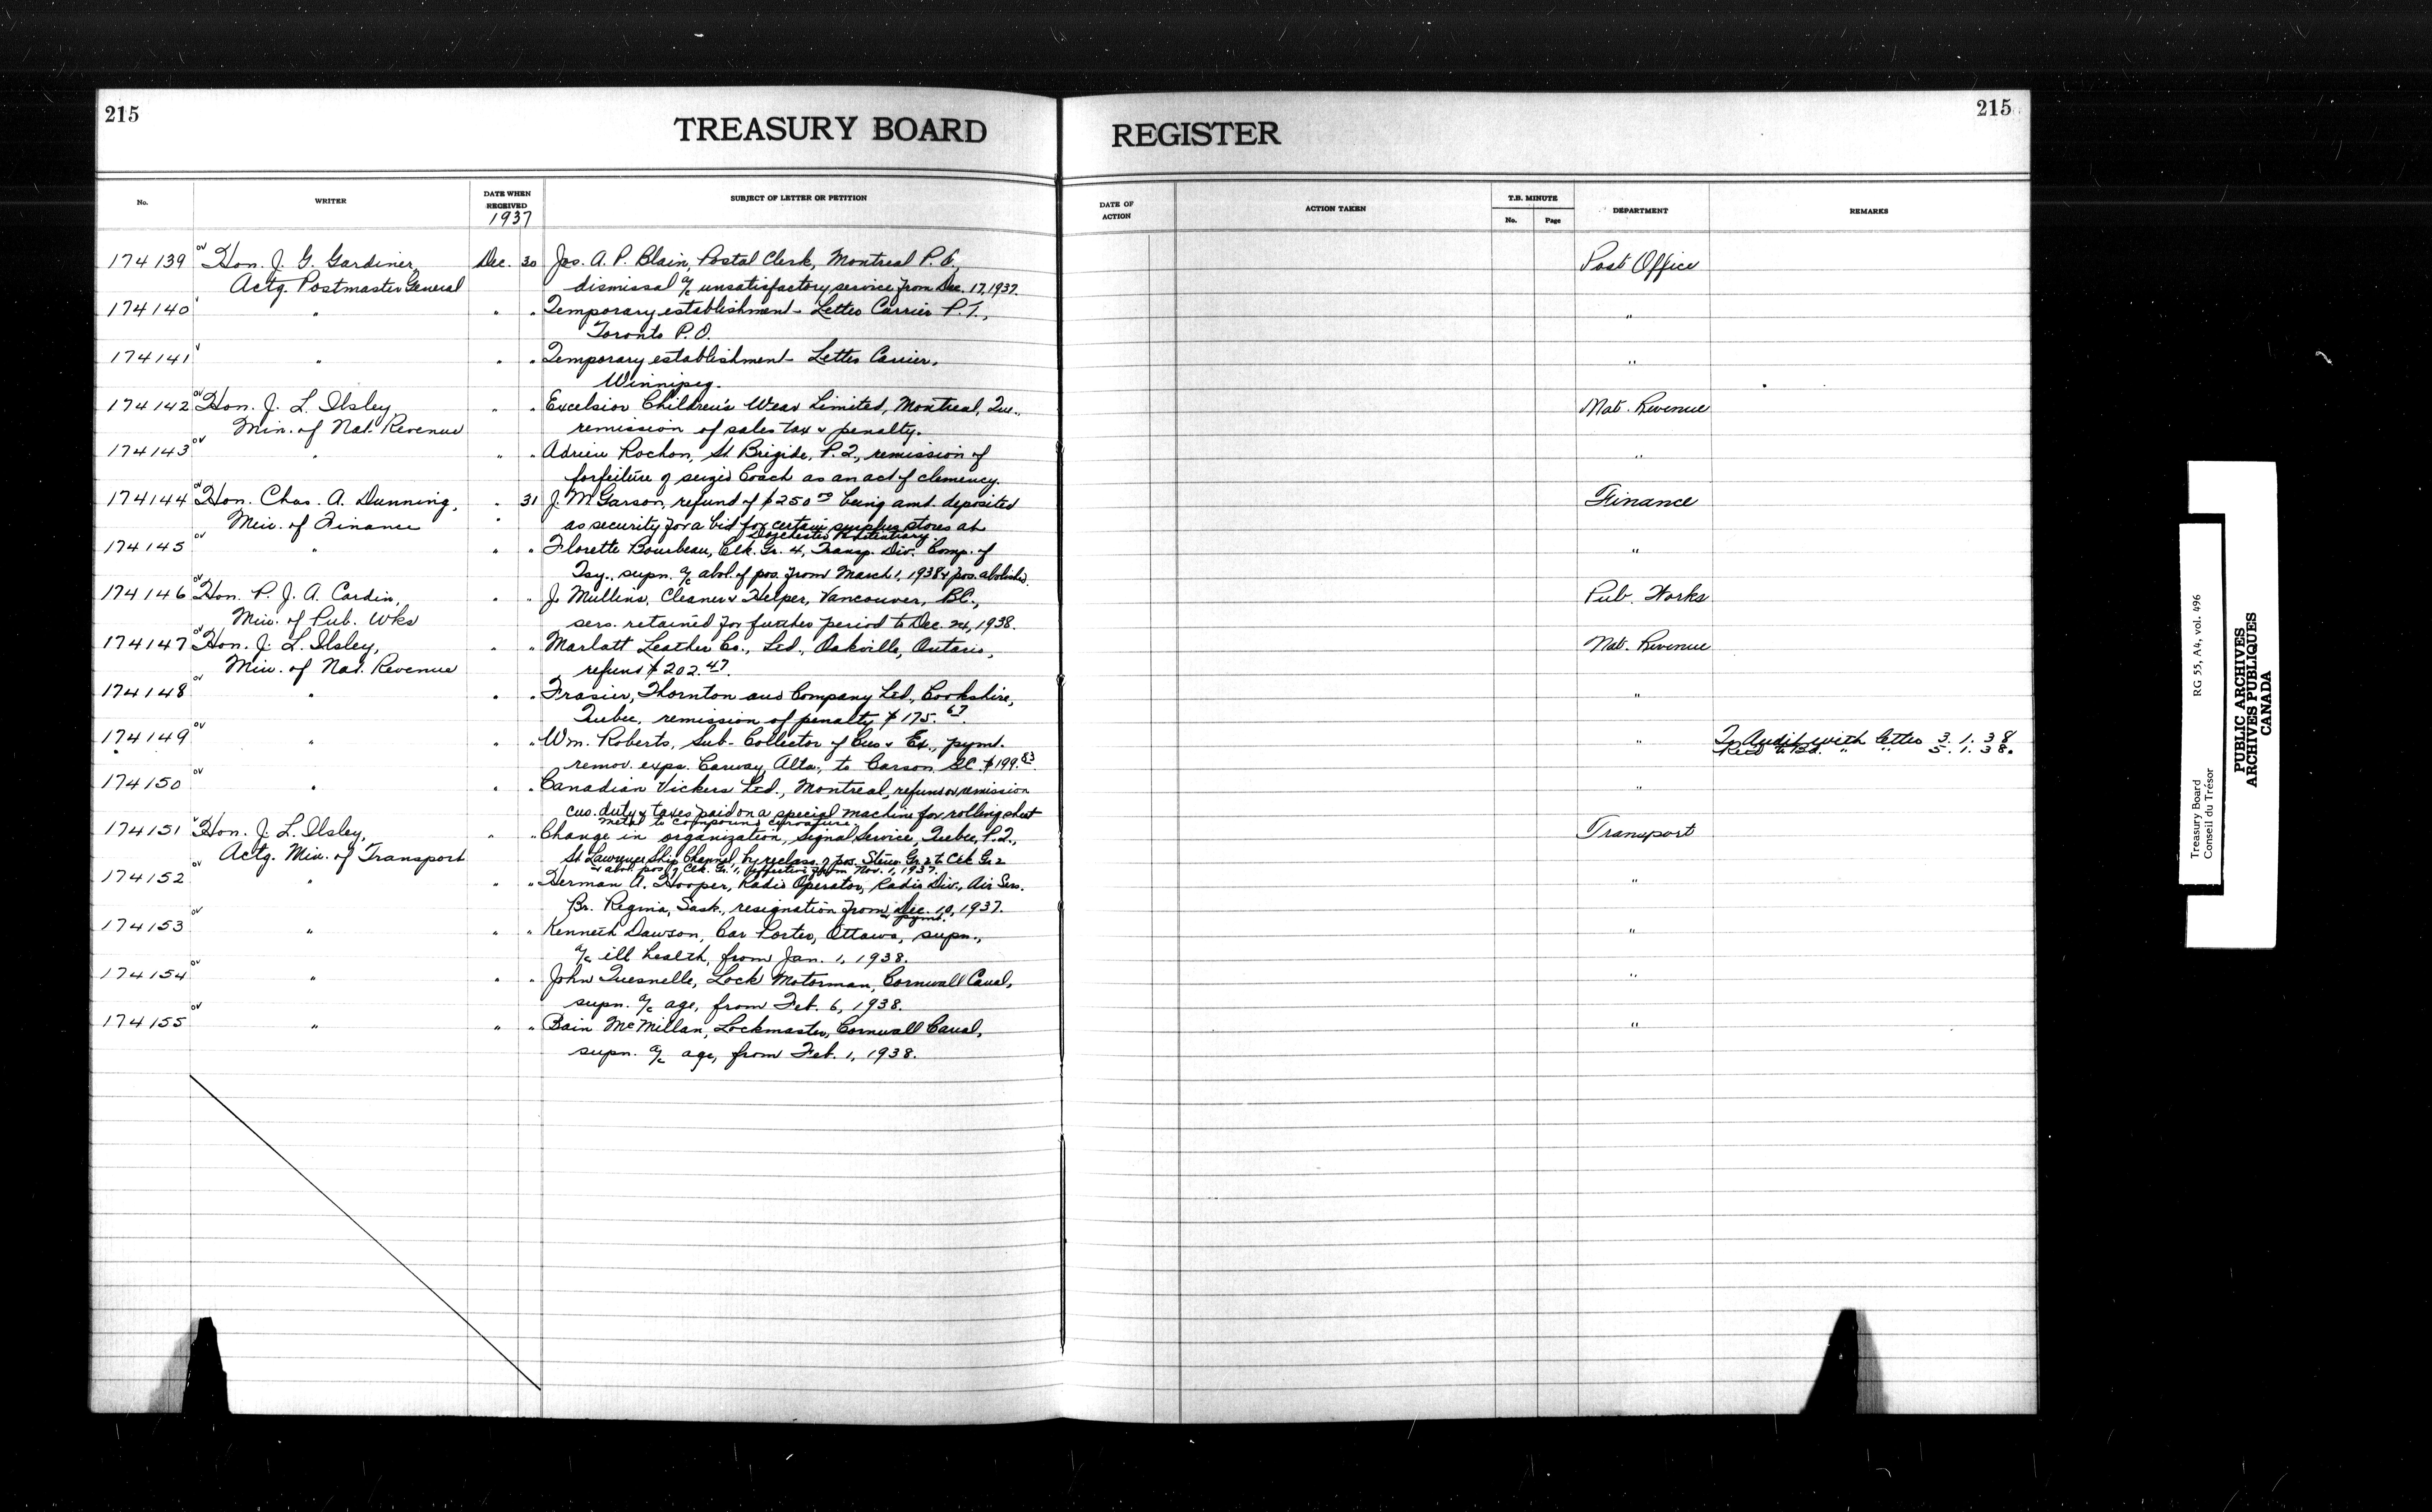 215
TREASURY BOARD
REGISTER
215
No.
WRITER
DATE WHEN RECEIVED
1937
SUBJECT OF LETTER OR PETITION
DATE OF ACTION
ACTION TAKEN
T.B. MINUTE
No.
Page
DEPARTMENT
REMARKS
174139 Hon. J. G. Gardiner, Dec. 30 Jos. A. P. Blain, Postal Clerk, Montreal P.O. Post Office
Actg. Postmaster General dismissal a/c unsatisfactory service from Dec. 17, 1937.
174140 " " " Temporary establishment - Letter Carrier P.T., "
Toronto P.O.
174141 " " " Temporary establishment - Letter Carrier, "
Winnipeg.
174142 Hon. J. L. Ilsley, " " Excelsior Children's Wear Limited, Montreal, Que., Nat. Revenue
Min. of Nat. Revenue remission of sales tax & penalty.
174143 " " " Adrien Rochon, St. Brigide, P.Q., remission of "
forfeiture of seized Coach as an act of clemency.
174144 Hon. Chas. A. Dunning, " 31 J. M. Garson, refund of $250 being amt. deposited Finance
Min. of Finance " as security for a bid for certain surplus stores at
Dorchester Penitentiary.
174145 " " " Florette Bourbeau, Clk. Gr. 4, Transp. Div. Comp. of "
Tsy., supn. a/c abol. of pos. from March 1, 1938 & pos. abolished
174146 Hon. P. J. A. Cardin, " " J. Mullins, Cleaner & Helper, Vancouver, B.C., Pub. Works
Min. of Pub. Wks sers. retained for further period to Dec. 24, 1938.
174147 Hon. J. L. Ilsley, " " Marlatt Leather Co., Ltd., Oakville, Ontario, Nat. Revenue
Min. of Nat. Revenue refund $202.47.
174148 " " " Frasier, Thornton and Company Ltd., Cookshire, "
Quebec, remission of penalty $175.67.
174149 " " " Wm. Roberts, Sub-Collector of Cus & Ex., pymt. " To Audit with letter 3.1.38
Recd " " 5.1.38.
remov. exps. Carway, Alta., to Carson, B.C. $199.83
174150 " " " Canadian Vickers Ltd., Montreal, refund or remission "
cus. duty & taxes paid on a special machine for rolling sheet
metal to compound curvature.
174151 Hon. J. L. Ilsley, " " Change in organization, Signal Service, Quebec, P.Q., Transport
Actg. Min. of Transport St. Lawrence Ship Channel, by reclass. of pos. Steno. Gr. 2 to Clk Gr. 2
& abol. pos. of Clk. Gr. 1, effective from Nov. 1, 1937.
174152 " " " Herman A. Hooper, Radio Operator, Radio Div., Air Ser. "
Br. Regina, Sask., resignation from Dec. 10, 1937.
& pymt.
174153 " " " Kenneth Dawson, Car Porter, Ottawa, supn., "
a/c ill health, from Jan. 1, 1938.
174154 " " " John Quesnelle, Lock Motorman, Cornwall Canal, "
supn. a/c age, from Feb. 6, 1938.
174155 " " " Bain McMillan, Lockmaster, Cornwall Canal, "
supn. a/c age, from Feb. 1, 1938.
Treasury Board RG 55, A4, vol. 496
Conseil du Trésor
PUBLIC ARCHIVES
ARCHIVES PUBLIQUES
CANADA